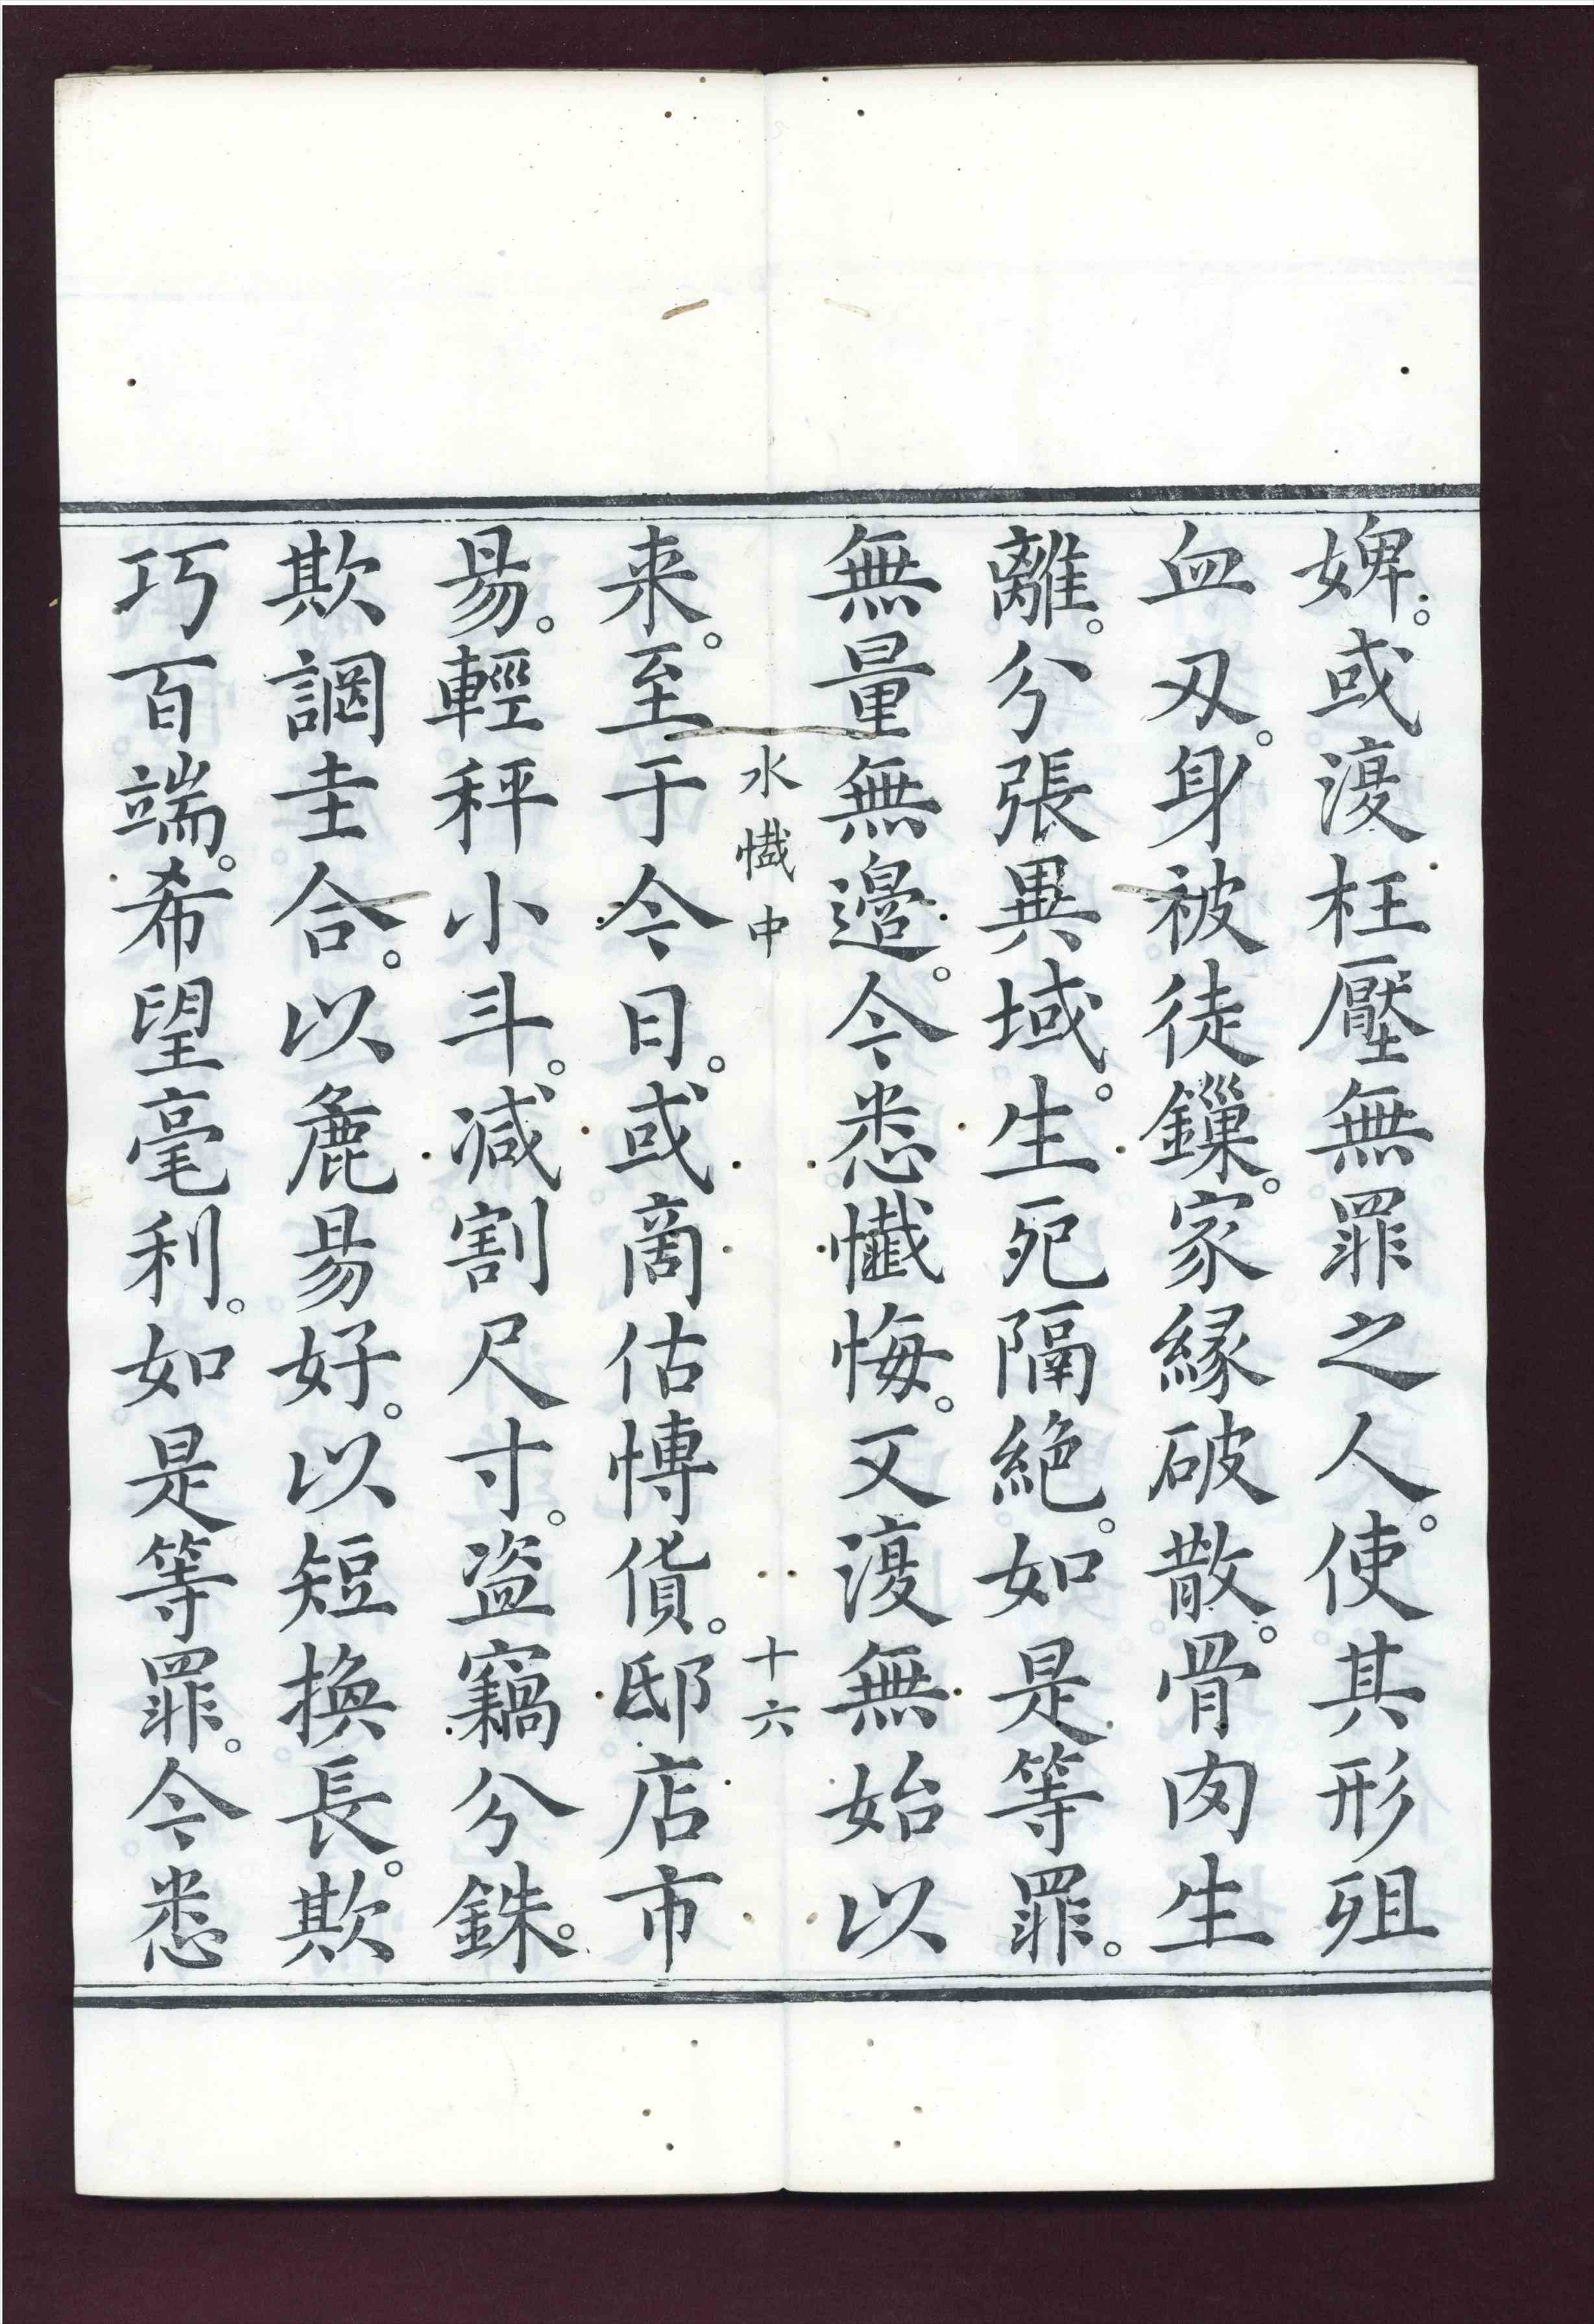 婢。或復枉壓無罪之人。使其形殂
血刃。身被徒鏁。家緣破散。骨肉生
離。分張異域。生死隔絕。如是等罪。
無量無邊。今悉懺悔。又復無始以
水懺中 十六
来。至于今日。或商估博貨。邸店市
易。輕秤小斗。減割尺寸。盜竊分銖。
欺誷圭合。以麁易好。以短換長。欺
巧百端。希望毫利。如是等罪。今悉